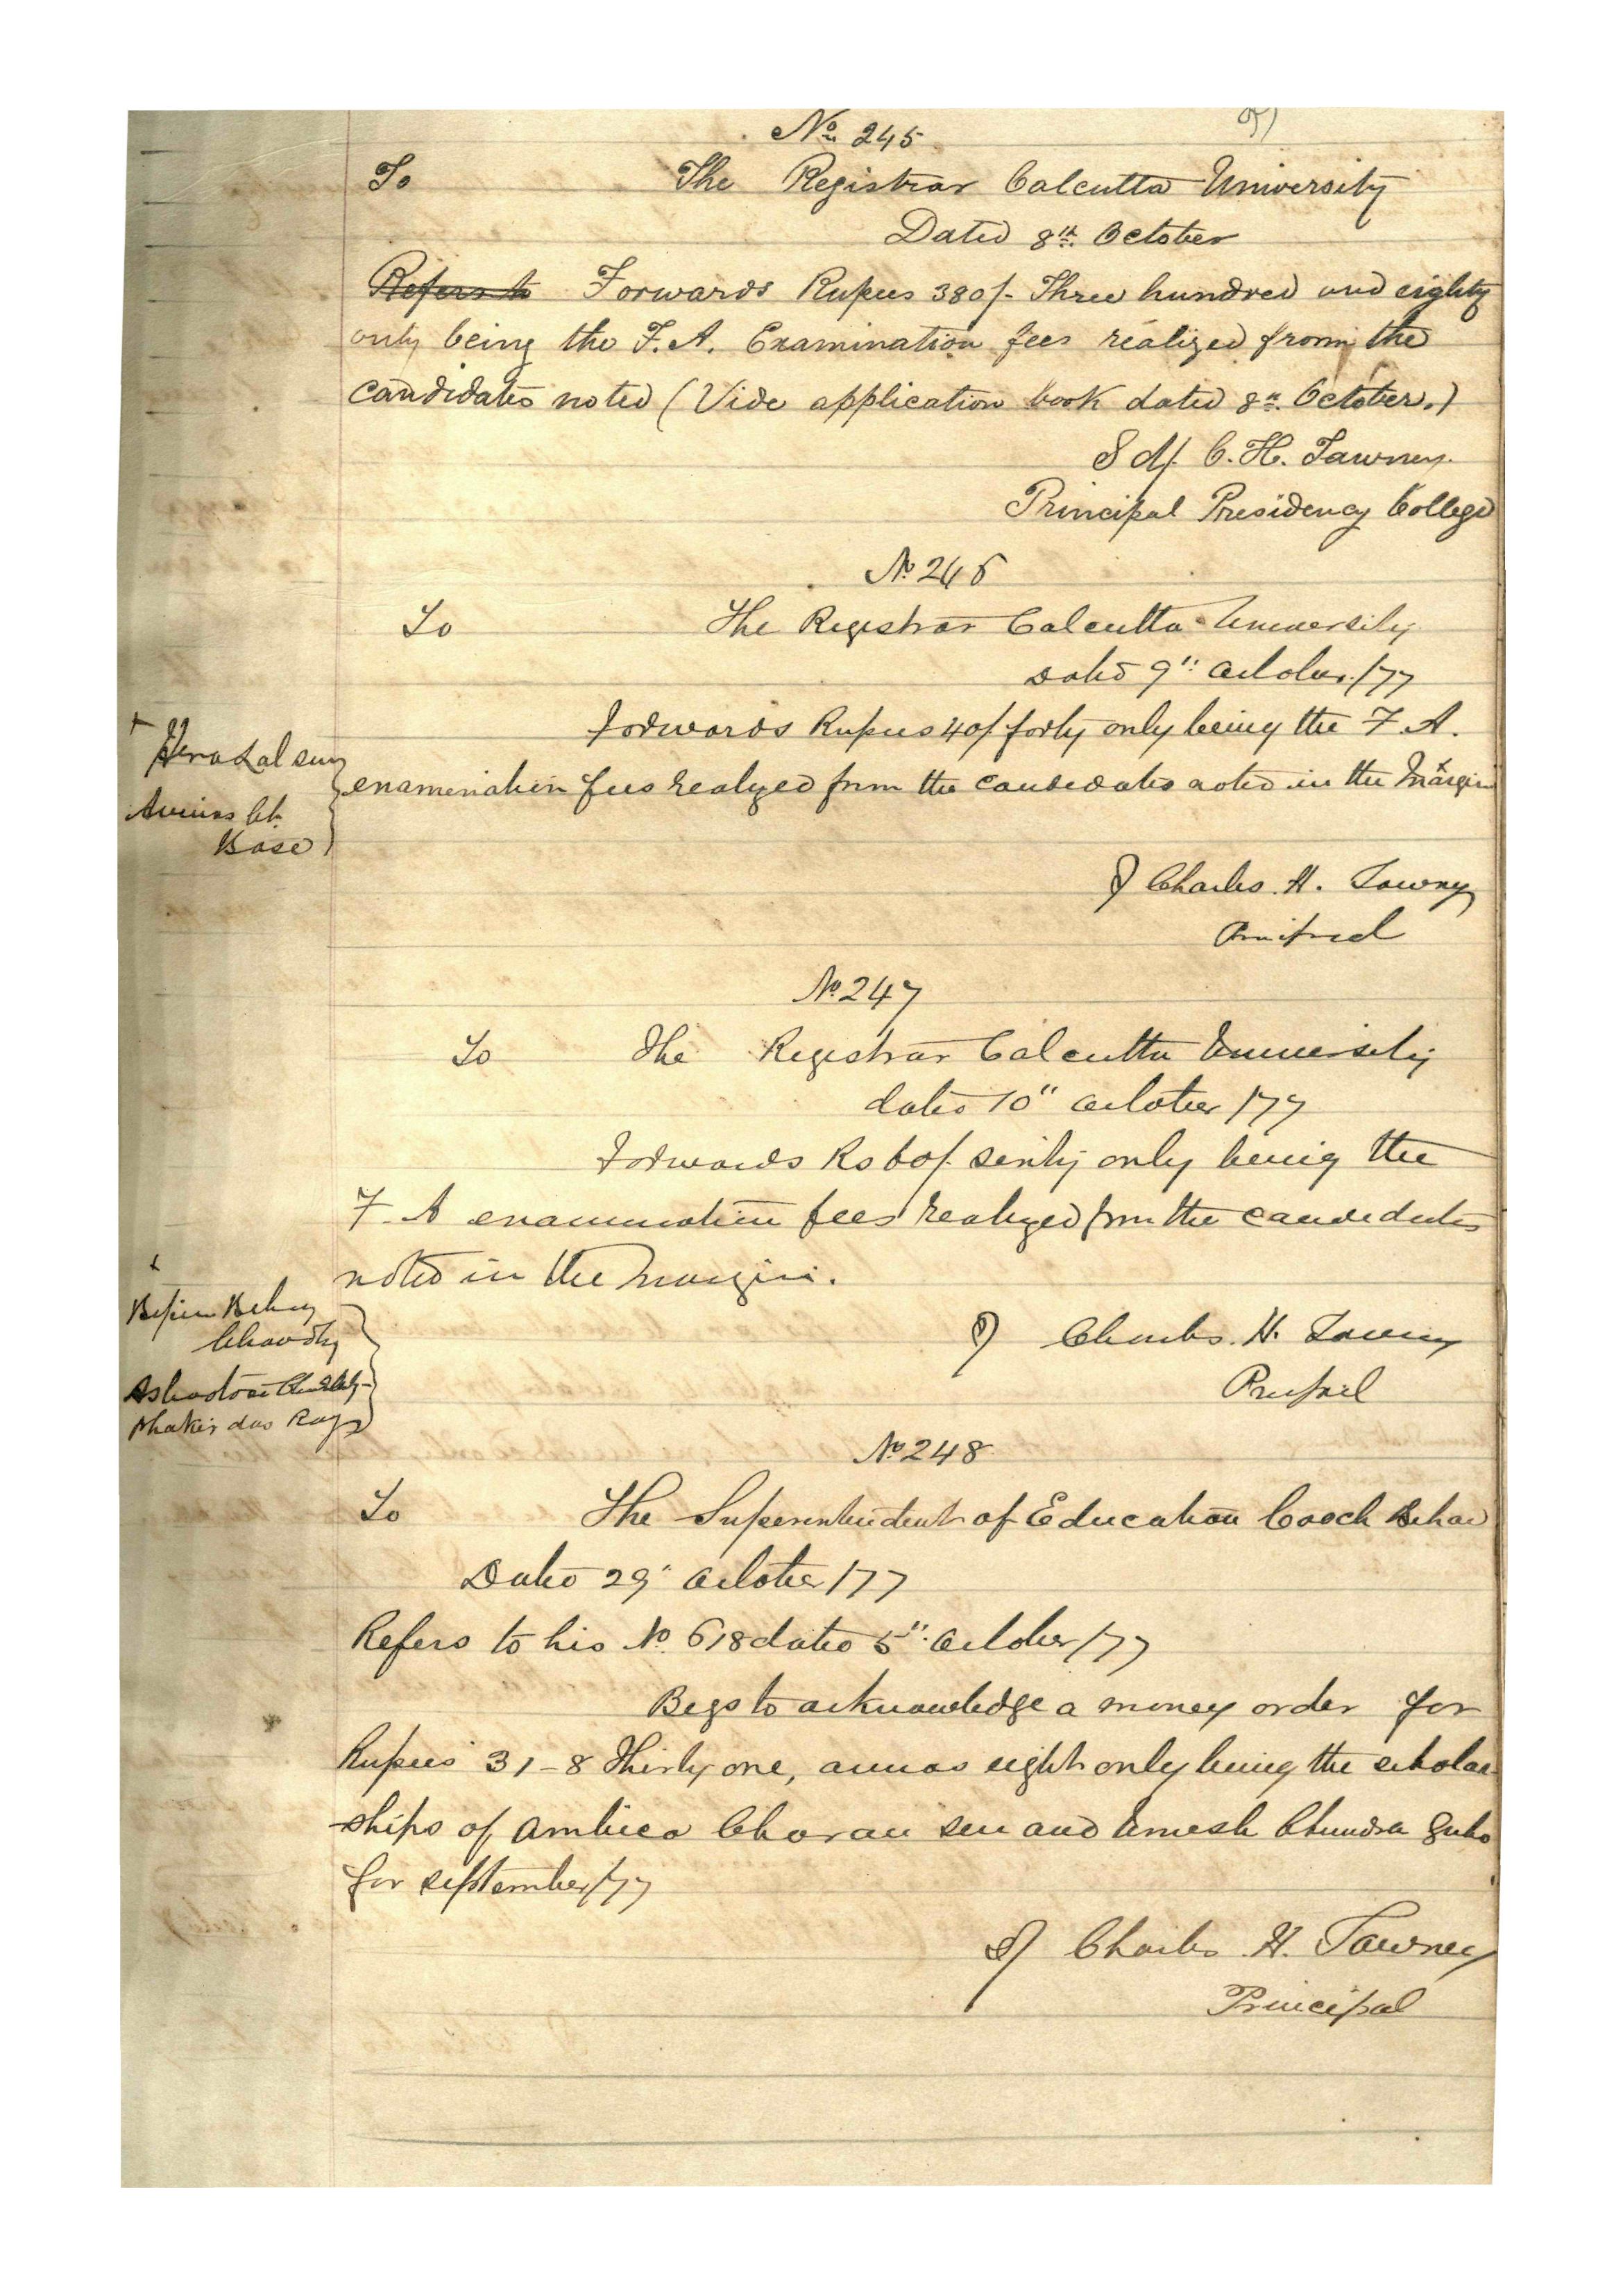 No 245
To The Registrar Calcutta University
Dated 8th October
Refers to Forwards Rupees 380/- Three hundred and eighty
only being the F.A. Examination fees realized from the
Candidates noted (Vide application book dated 8th October.)
Sd/- C. H. Tawney.
Principal Presidency College
No 246
To The Registrar Calcutta University
Dated 9th October /77
Forwards Rupees 40/ forty only being the F A.
Hera Lal Sen
examination fees realyzed from the candidates noted in the Margin
Avinas Ch.
Bose
Charles. H. Tawney
Principal
No 247
To The Registrar Calcutta University
dated 10" October /77
Forwards Rs 60/- sixty only being the
F. A examination fees realyzed from the candidates
noted in the margin.
Bepin Behary
Chowdhy
Charles. H. Tawney
Principal
Dhakir das Ray
No 248
To The Superintendent of Education Cooch Behar
Dated 29" October /77
Refers to his No. 618 dated 5": October /77
Begs to acknowledge a money order for
Rupees 31-8 Thirty one, annas eight only being the scholar
-ships of Ambica Choran Sen and Umesh Chundra Guho
for september /77
Charles H. Tawney
Principal